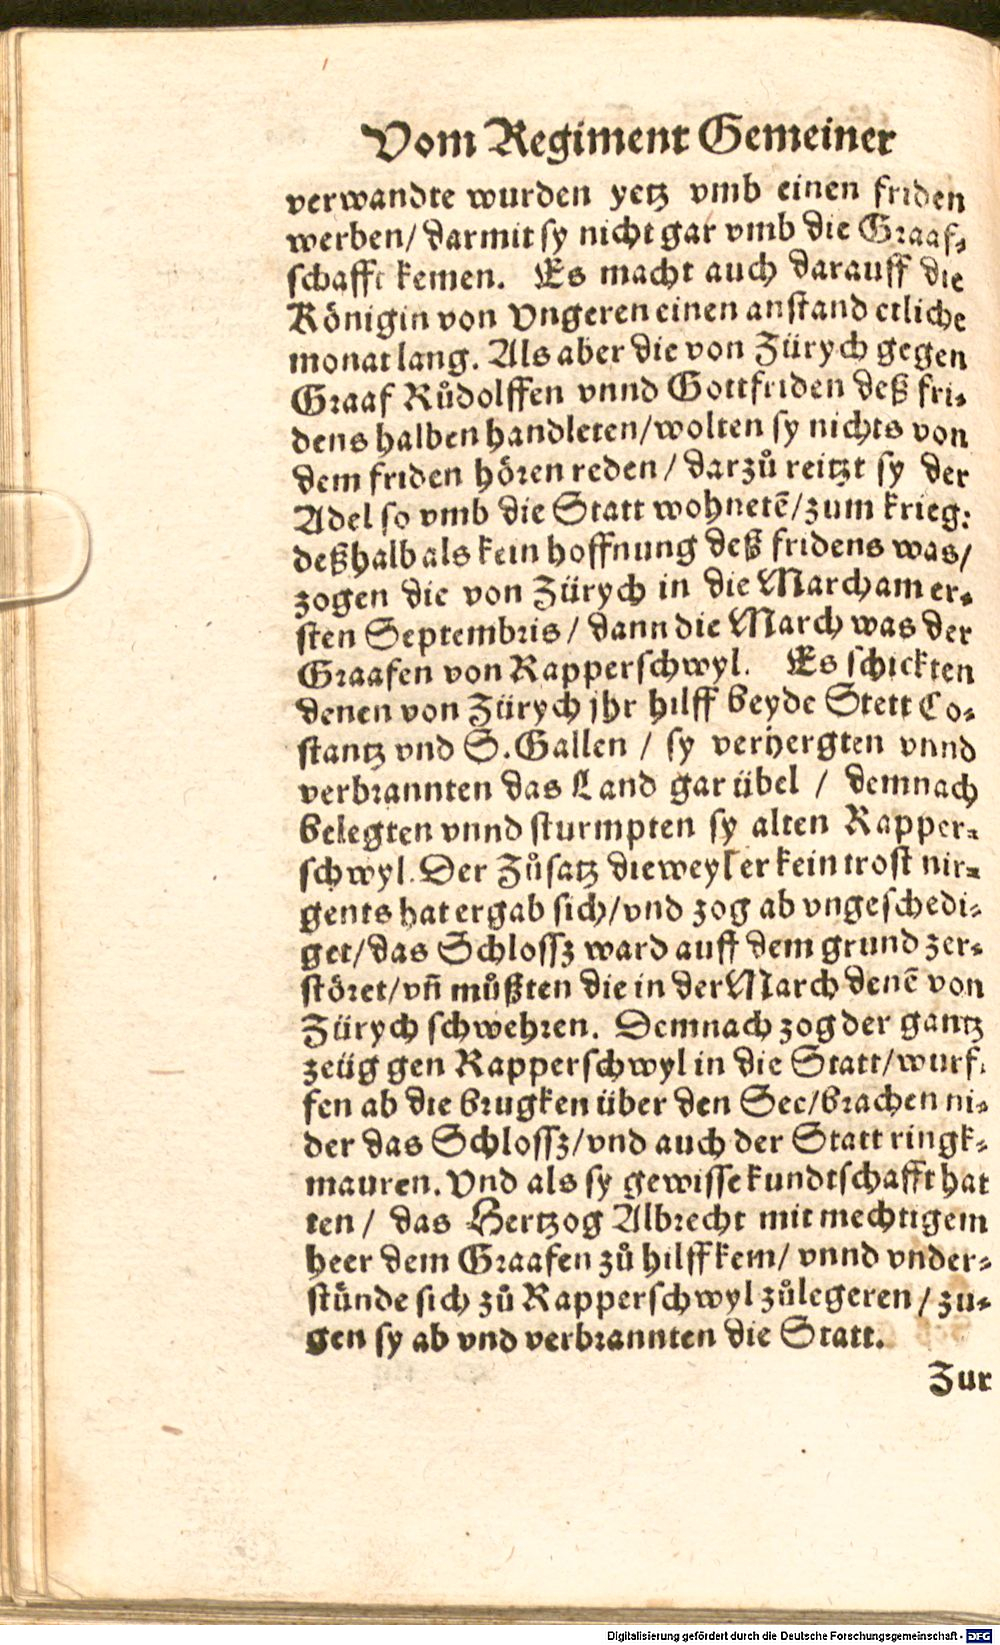 Vom Regiment Gemeiner
verwandte wurden yetz vmb einen friden
werben/ darmit sy nicht gar vmb die Graaf-
schafft kemen. Es macht auch darauff die
Königin von Vngeren einen anstand etliche
monat lang. Als aber die von Zürych gegen
Graaf Růdolffen vnnd Gottfriden deß fri-
dens halben handleten/wolten sy nichts von
dem friden hören reden / darzů reitzt sy der
Adel so vmb die Statt wohnetē/zum krieg:
deßhalb als kein hoffnung deß fridens was/
zogen die von Zürych in die March am er-
sten Septembris / dann die March was der
Graafen von Rapperschwyl. Es schickten
denen von Zürych jhr hilff beyde Stett Co-
stantz vnd S.Gallen / sy verhergten vnnd
verbrannten das Land gar übel / demnach
belegten vnnd sturmpten sy alten Rapper-
schwyl. Der Zůsatz dieweyl er kein trost nir-
gents hat ergab sich/vnd zog ab vngeschedi-
get/das Schlossz ward auff dem grund zer-
störet/vn̄ můßten die in der March denē von
Zürych schwehren. Demnach zog der gantz
zeüg gen Rapperschwyl in die Statt/wurf-
fen ab die brugken über den See/brachen ni-
der das Schlossz/vnd auch der Statt ringk-
mauren. Vnd als sy gewisse kundtschafft hat
ten / das Hertzog Albrecht mit mechtigem
heer dem Graafen zů hilff kem/ vnnd vnder-
stünde sich zů Rapperschwyl zůlegeren / zu-
gen sy ab vnd verbrannten die Statt.
Zur
Digitalisierung gefördert durch die Deutsche Forschungsgemeinschaft - DFG